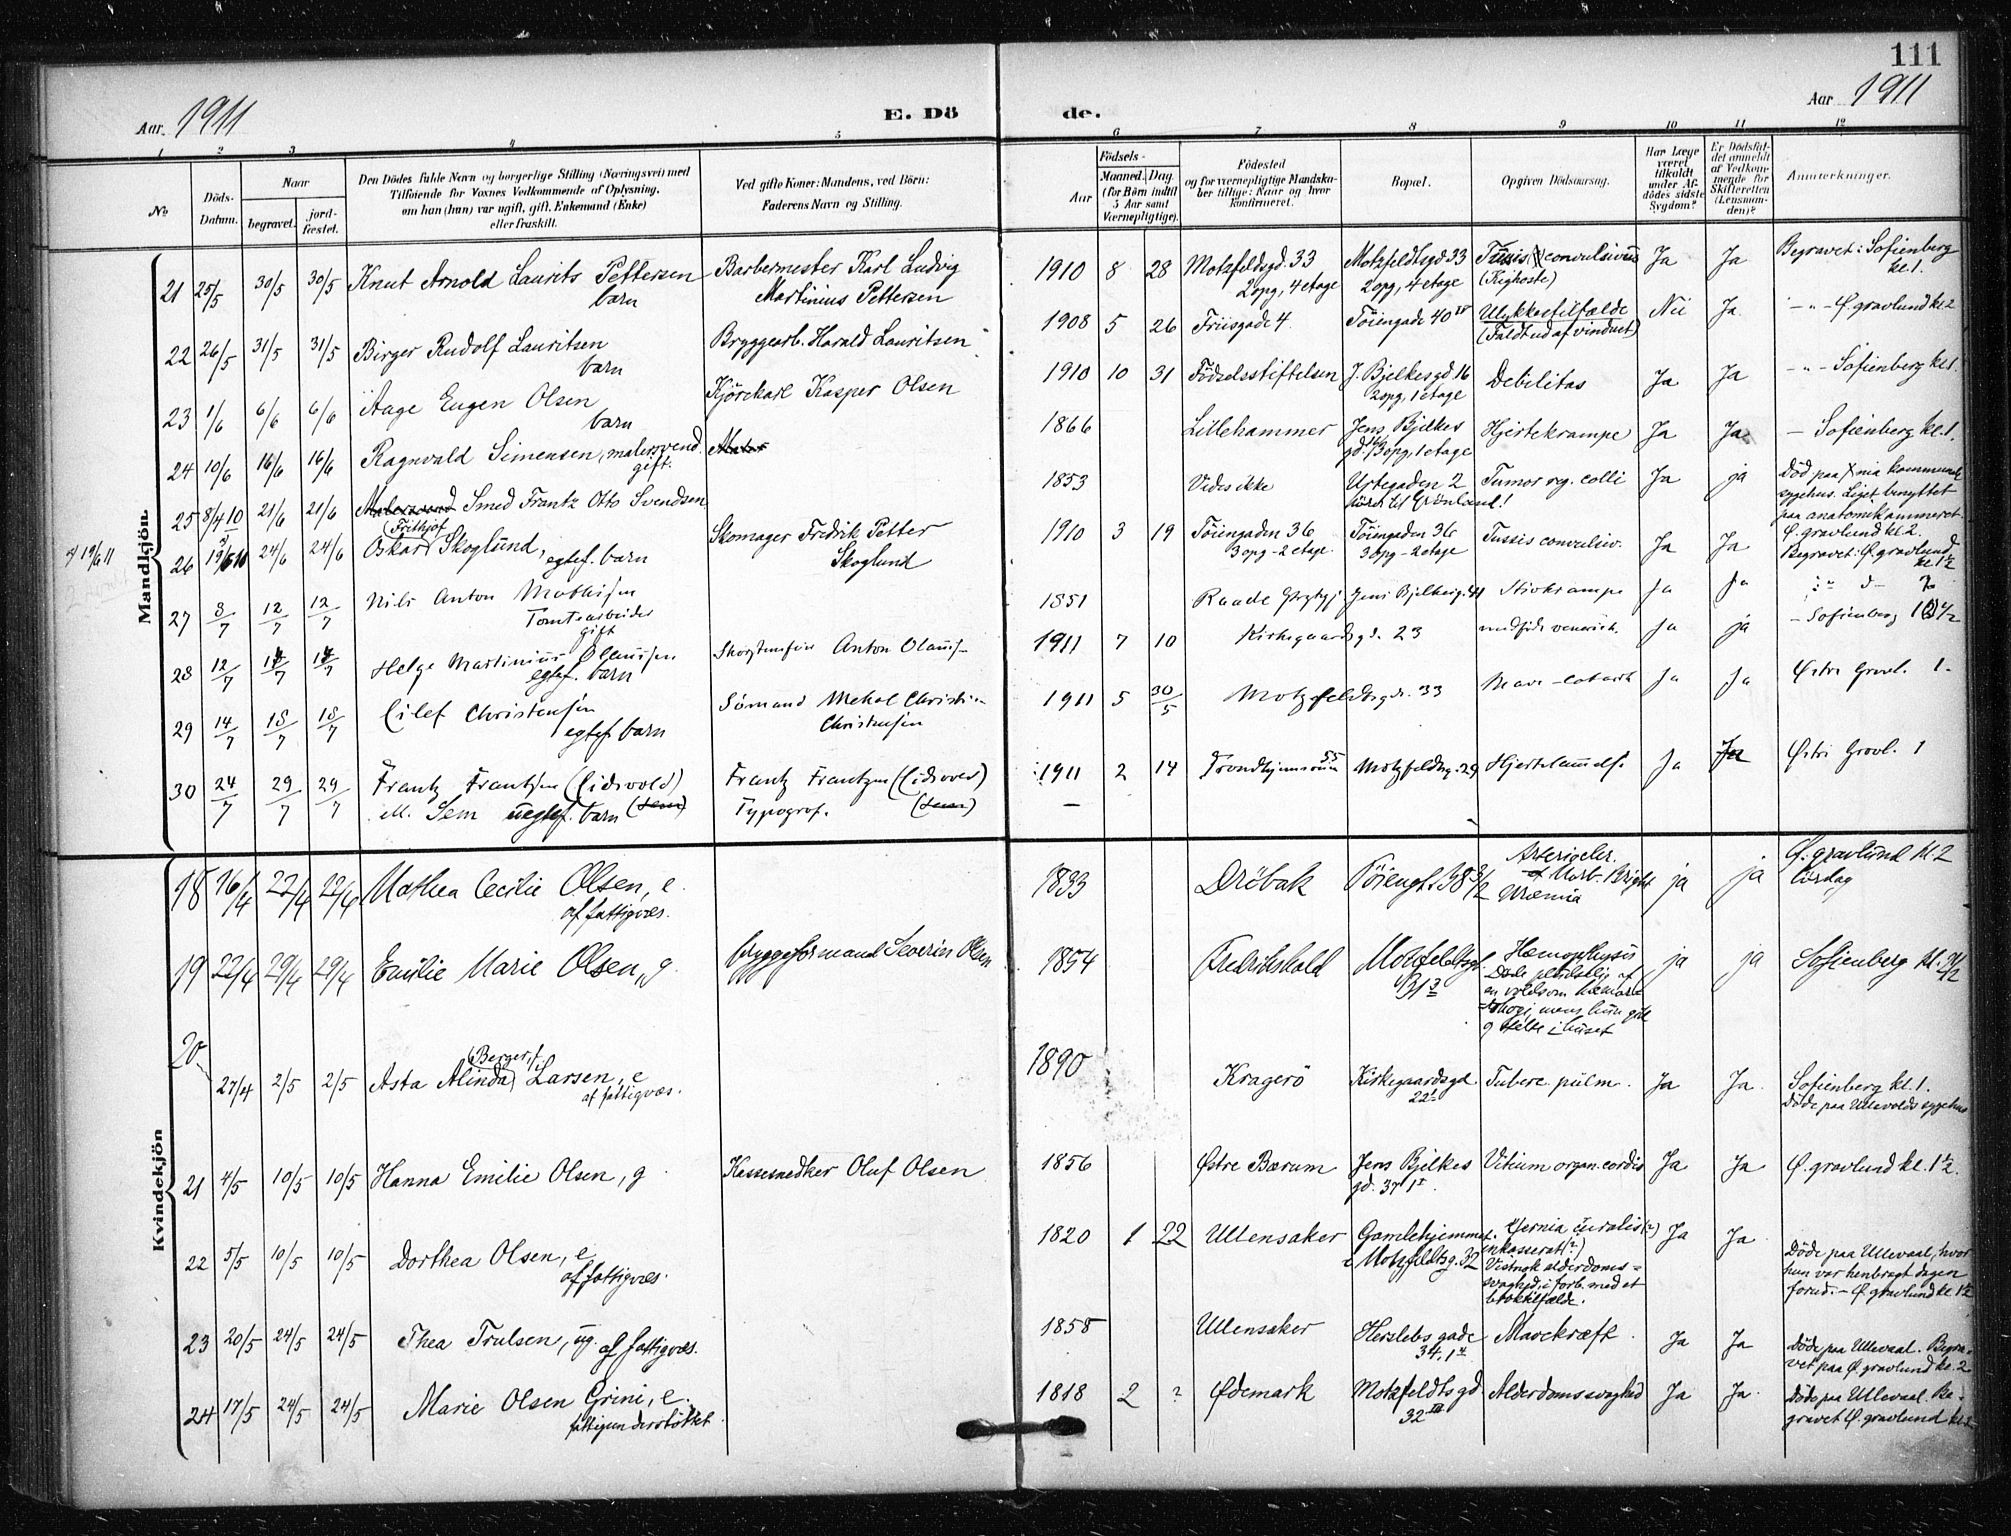 111
Aar 1911
E. Dö
de.
Aar 1911
1 2 3 4 5 6 7 8 9 10 11 12
No
Döds-Datum.
Naar
begravet.
jord-fæstet.
Den Dödes fulde Navn og borgerlige Stilling (Næringsvei) med
Tilföiende for Voxnes Vedkommende af Oplysning,
om han (hun) var ugift, gift, Enkemand (Enke)
eller fraskilt.
Ved gifte Koner: Mandens, ved Börn:
Faderens Navn og Stilling.
Födsels-
Aar
Maaned. Dag.
(for Börn indtil
5 Aar samt
Værnepligtige).
Födested
og for værnepligtige Mandska-
ber tillige: Naar og hvor
konfirmeret.
Bopæl.
Opgiven Dödsaarsag.
Har Læge
været
tilkaldt
under Af-
dödes sidste
Sygdom?
Er Dödsfal-
det anmeldt
af Vedkom-
mende for
Skifteretten
(Lensman-
den)?
Anmærkninger.
Mandkjön.
21 25/5 30/5 30/5 Knut Arnold Laurits Pettersen
barn
Barbermester Karl Ludvig
Martinius Pettersen
1910 8 28 Motzfeldsgd. 33
2opg, 4 etage
Motzfeldtsgd 33
2 opg, 4 etage
Tussis convulsivus
(Kighoste)
Ja Ja Begravet: Sofienberg
kl. 1.
22 26/5 31/5 31/5 Birger Rudolf Lauritsen
barn
Bryggearb. Harald Lauritsen
1908 5 26 Friisgade 4. Töiengade 40 IV Ulykkestilfælde
(Faldt ud af vinduet)
Nei Ja - " - Ø. gravlund kl 2
23 1/6 6/6 6/6 Aage Eugen Olsen
barn
Kjörekarl Kasper Olsen
1910 10 31 Födselsstiftelsen J. Bjelkesgd 16
2opg, 1 etage
Debilitas Ja Ja - " - Sofienberg kl 1.
24 10/6 16/6 16/6 Ragnvald Simensen, malersvend
gift.
1866 Lillehammer Jens Bjelkes
Hjertekrampe Ja Ja - Sofienberg kl. 1.
25 8/4 10 21/6 21/6 Smed Frantz Otto Svendsen
1853 Vides ikke Urtegaden 2
hörer til Grönland!
Tumor reg. colli Ja ja Död paa Xnia kommunale
sygehus. Liget benyttet
paa anatomikammeret.
Ø. gravlund kl 2.
26 24/6 24/6 Oskar (Frithjof) Skoglund,
egtef. barn
Skomager Fredrik Petter
Skoglund
1910 3 19 Töiengaden 36
3 opg - 2 etage
Töiengaden 36
3 opg - 2 etage
Tussis convulsiv. Ja Ja Begravet: Ø. gravlund
kl 1½
27 8/7 12/7 12/7 Nils Anton Mathisen
Tomtearbeider
gift
1851 Raade Jens Bjelkesg. 41 Hjertekrampe Ja Ja
28 12/7 Helge Martinius Olaussen
egtef. barn
Anton Olaus-
1911 7 10 Kirkegaardsgd. 23 medfödt venerisk. Ja ja - Sofienberg
29 14/7 18/7 18/7 Eilef Christensen
egtef. barn
Sömand Mekal Christian
Christensen
1911 5 30/5 Motzfeldtsgd. 33 Mave-catarh Ja Ja Østre Gravl. 1-
30 24/7 29/7 29/7 Frantz Frantzen (Eidsvold)
M. Sem uegtef. barn
Frantz Frantzen (Eidsvold)
Typograf.
1911 2 14 Motzfeldtsg. 29 Ja Ja Østre Gravl. 1
Kvindekjön
18 16/4 22/4 22/4 Mathea Cecilie Olsen, e.
af fattigvæs.
1833 Dröbak Töiengt. 38
Morb. Bright
Uræmia
ja ja Ø. gravlund kl. 2
lördag
19 22/4 29/4 29/4 Emilie Marie Olsen, g.
Bryggeformand Severin Olsen
1854 Fredrikshald Motzfeldtsgt.
Hæmophtysis
Döde pludselig af
en voldsom hæmor-
rhagi, mens hun gik
g stelte i huset
ja ja Sofienberg
20 27/4 2/5 2/5 Asta Alinda (Berger, f.) Larsen, e
af fattigvæs.
1890 Kragerö Kirkegaardsgd
22
Tuberc. pulm. Ja Ja. Sofienberg kl. 1.
Döde paa Ullevolds sygehus
21 4/5 10/5 10/5 Hanna Emilie Olsen, g
Kassesnedker Oluf Olsen
1856 Østre Bærum Jens Bjelkes
gd. 37 I.
Vitium organ. cordis Ja Ja Ø. gravlund kl. 1½.
22 5/5 10/5 10/5 Dorthea Olsen, e
af fattigvæs.
1820 1 22 Ullensaker Gamlehjemmet
i Motzfeldtsg. 32
Hernia curalis (?)
inkasserat (?)
Vistnok alderdoms=
svaghed, i forb. med et
broktilfælde.
Ja Ja Döde paa Ullevaal, hvor
hun var henbragt dagen
forud. - Ø gravlund kl 1½
23 20/5 24/5 24/5 Thea Trulsen, ug. af fattigvæs.
1858 Ullensaker Herslebs gade
34, 1
Mavekræft Ja Ja Döde paa Ullevaal. Begra-
vet paa Ø gravlund kl. 2
24 17/5 24/5 24/5 Marie Olsen Grini, e.
fattigunderstöttet
1818 2 ? Ødemark Motzfeldtsgd
32 III
Alderdomssvaghed Ja Ja. Döde paa Ullevaal. Be-
gravet Ø. gravlund kl 2